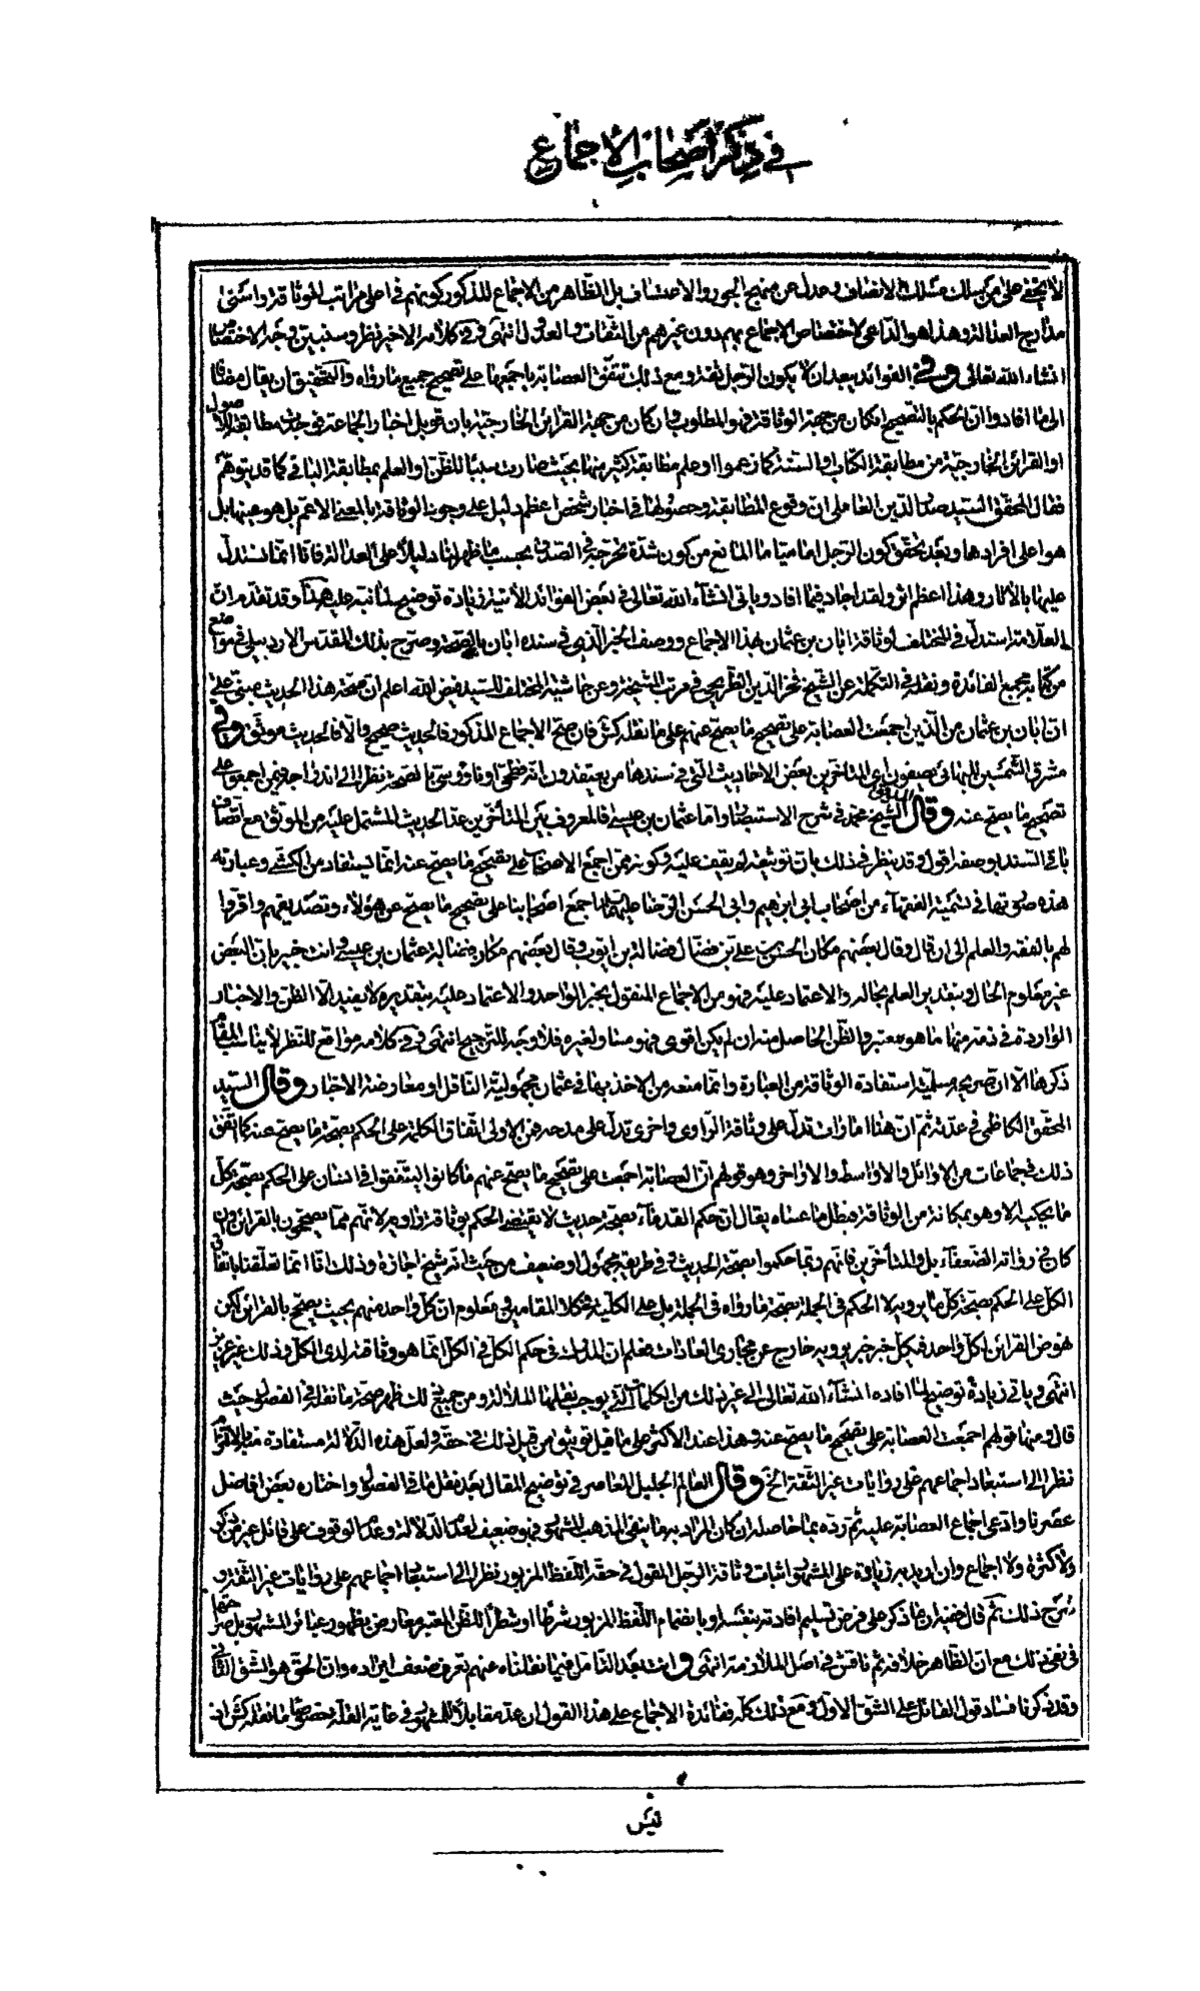 في ذكر أصحاب الإجماع
لا يخفى على من سلك مسلك الانصاف وعدل عن منهج الجور والاعتساف بل الظاهر من الاجماع المذكور كونهم في اعلى مراتب الوثاقة واسنى
مدارج العدالة وهذا هو الداعي لاختصاص الاجماع بهم دون غيرهم من الثقات والعدول انتهى وفي كلامه الاخير نظر وسنبين وجه الاختصاص
انشاء الله تعالى وفي الفوائد بعد ان لا يكون الرجل ثقة ومع ذلك تتفق العصابة باجمعها على تصحيح جميع ما رواه والتحقيق ان يقال مضافا
الى ما افادوا ان الحكم بالتصحيح ان كان من جهة الوثاقة فهو المطلوب وان كان من جهة القرائن الخارجية بان قوبل اخبار الجماعة فوجدت مطابقة للاصول
او القرائن الخارجية من مطابقة الكتاب والسنة كما زعموا او علم مطابقة كثير منها بحيث صارت سببا للظن او العلم بمطابقة الباقي كما قد يتوهم
فقال المحقق السيد صدر الدين العاملي ان وقوع المطابقة وحصولها في اخبار شخص اعظم دليل على وجود الوثاقة بالمعنى الاعم بل هو عينها بل
هو اعلى افرادها وبعد تحقق كون الرجل اماميا ما المانع من كون شدة تحرجه في الصدق بحسب ما ظهر لنا دليلا على العدالة فانا انما نستدل
عليها بالآثار وهذا اعظم اثر ولقد اجاد فيما افاد وياتي انشاء الله تعالى في بعض الفوائد الآتية زيادة توضيح لما نبه عليه هذا وقد تقدم ان
العلامة استدل في المختلف لوثاقة ابان بن عثمان بهذا الاجماع ووصف الخبر الذي في سنده ابان بالصحة وصرح بذلك المقدس الاردبيلي في مواضع
من كتابه مجمع الفائدة ونقله في التكملة عن الشيخ فخر الدين الطريحي في مرتب المشيخة وعن حاشية المختلف للسيد فيض الله اعلم ان صحة هذا الحديث مبنى على
ان ابان بن عثمان من الذين اجمعت العصابة على تصحيح ما يصح عنهم على ما نقله كش فان صح الاجماع المذكور فالحديث صحيح والا فالحديث موثق وفي
مشرق الشمسين للبهائي يصفون اي المتاخرين بعض الاحاديث التي في سندها من يعتقدون انه فطحي او ناووسي بالصحة نظرا الى اندراجه فيمن اجمعوا على
تصحيح ما يصح عنه وقال الشيخ محمد في شرح الاستبصار واما عثمان بن عيسى فالمعروف بين المتأخرين عد الحديث المشتمل عليه من الموثق مع اتصاف
باقي السند بوصفه اقول وقد ينظر في ذلك بان توثيقه لم يقف عليه وكونه ممن اجمع الاصحاب على تصحيح ما يصح عنه انما يستفاد من الكشي وعبارته
هذه صورتها في تسمية الفقهاء من اصحاب ابي ابراهيم وابي الحسن الرضا عليهما اجمع اصحابنا على تصحيح ما يصح عن هؤلاء وتصديقهم واقروا
لهم بالفقه والعلم الى ان قال وقال بعضهم مكان الحسن بن علي بن فضال فضالة بن ايوب وقال بعضهم مكان فضالة عثمان بن عيسى وانت خبير بان البعض
غير معلوم الحال وبتقدير العلم بحاله والاعتماد عليه فهو من الاجماع المنقول بخبر الواحد والاعتماد عليه بتقديره لا يفيد الا الظن والاخبار
الواردة في ذمه منها ما هو معتبر والظن الحاصل منه ان لم يكن اقوى فهو مساو لغيره فلا وجه للترجيح انتهى وفي كلامه مواقع للنظر لا يناسب المقام
ذكرها الا ان صريحه مسلمية استفادة الوثاقة من العبارة وانما منعه من الاخذ بها في عثمان مجهولية الناقل او معارضة الاخبار وقال السيد
المحقق الكاظمي في عدته ثم ان هنا امارات تدل على وثاقة الراوي واخرى تدل على مدحه فمن الاولى اتفاق الكلمة على الحكم بصحة ما يصح عنه كما اتفق
ذلك في جماعات من الاوائل والاواسط والاواخر وهو قولهم ان العصابة اجمعت على تصحيح ما يصح عنهم ما كانوا ليتفقوا في انسان على الحكم بصحة كل
ما يحكيه الا وهو بمكانة من الوثاقة فبطل ما عساه يقال ان حكم القدماء بصحة حديث لا يقتضي الحكم بوثاقة راويه لانهم مما يصححون بالقرائن وان
كان في رواته الضعفاء بل والمتأخرين فانهم ربما حكموا بصحة الحديث وفي طريقه مجهول او ضعيف من حيث انه شيخ اجازة وذلك انا انما تعلقنا باتفاق
الكل على الحكم بصحة كل ما يرويه لا الحكم في الجملة بصحة ما رواه في الجملة بل على الكلية في كلا المقامين ومعلوم ان كل واحد منهم بحيث يصحح بالقرائن لكن
نهوض القرائن لكل واحد في كل خبر خبر يرويه خارج عن مجاري العادات فعلم ان المدار في حكم الكل في الكل انما هو وثاقته لدى الكل وذلك غير عزيز
انتهى وياتي زيادة توضيح لما افاده انشاء الله تعالى الى غير ذلك من الكلمات التي يوجب نقلها الملالة ومن جميع ذلك ظهر صحة ما نقله في الفصول حيث
قال ومنها قولهم اجمعت العصابة على تصحيح ما يصح عنه وهذا عند الاكثر على ما قيل توثيق من قيل ذلك في حقه ولعل هذه الدلالة مستفادة منه بالالتزام
نظرا الى استبعاد اجماعهم على روايات غير الثقة الخ وقال العالم الجليل المعاصر في توضيح المقال بعد نقل ما في الفصول واختاره بعض افاضل
عصرنا وادعى اجماع العصابة عليه ثم رده بما حاصله ان كان المراد به ما ينفي المذهب المشهور فهو ضعيف لعدم الدلالة وعدم الوقوف على قائل غير من ذكر
ولا كثرة ولا اجماع وان اريد به زيادة على المشهور اثبات وثاقة الرجل المقول في حقه اللفظ المزبور نظرا الى استبعاد اجماعهم على روايات غير الثقة و
نحو ذلك ثم قال ففيه ان ما ذكر على فرض تسليم افادته بنفسه او بانضمام اللفظ المزبور شرطا او شطرا للظن المعتبر معارض بظهور عبائر المشهور بل صراحتها
في نفي ذلك مع ان الظاهر خلافه ثم ناقش في اصل الملازمة انتهى وانت بعد التامل فيما نقلناه عنهم تعرف ضعف ايراده وان الحق هو الشق الثاني
وقد ذكرنا فساد قول القائل على الشق الاول ومع ذلك كله ففائدة الاجماع على هذا القول ان عد مقابلا للمشهور في غاية القلة بخصوصها ما نقله كش اذ
ليس